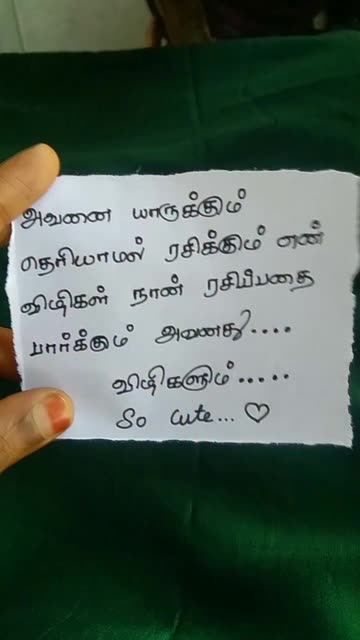 அவனை யாருக்கும்
தெரியாமல் ரசிக்கும் என்
விழிகள் நான் ரசிப்பதை
பார்க்கும் அவனது....
விழிகளும்.....
So cute... ♡